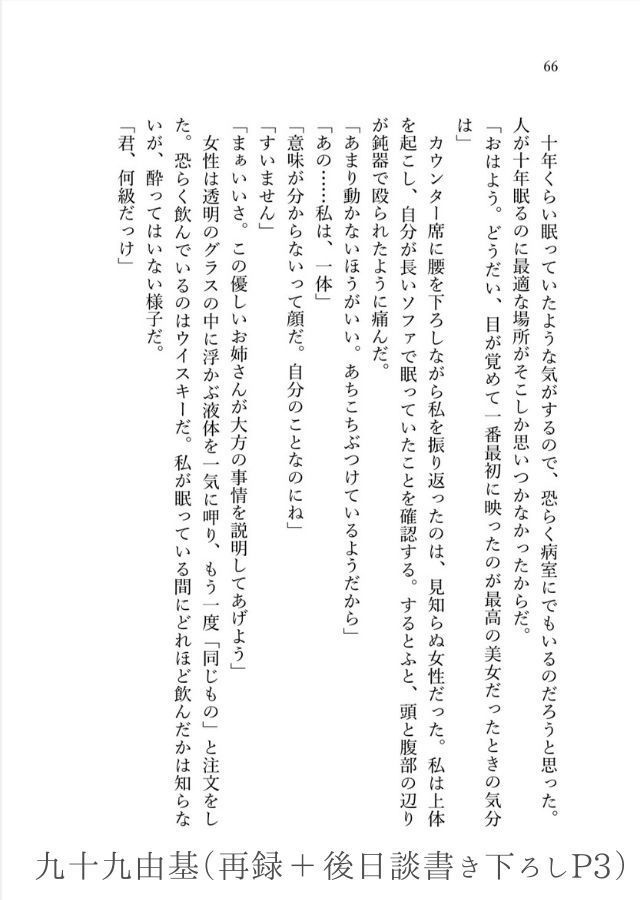 66
十年くらい眠っていたような気がするので、恐らく病室にでもいるのだろうと思った。
人が十年眠るのに最適な場所がそこしか思いつかなかったからだ。
「おはよう。どうだい、目が覚めて一番最初に映ったのが最高の美女だったときの気分
は」
カウンター席に腰を下ろしながら私を振り返ったのは、見知らぬ女性だった。私は上体
を起こし、自分が長いソファで眠っていたことを確認する。するとふと、頭と腹部の辺り
が鈍器で殴られたように痛んだ。
「あまり動かないほうがいい。あちこちぶつけているようだから」
「あの……私は、一体」
「意味が分からないって顔だ。自分のことなのにね」
「すいません」
「まぁいいさ。この優しいお姉さんが大方の事情を説明してあげよう」
女性は透明のグラスの中に浮かぶ液体を一気に呷り、もう一度「同じもの」と注文をし
た。恐らく飲んでいるのはウイスキーだ。私が眠っている間にどれほど飲んだかは知らな
いが、酔ってはいない様子だ。
「君、何級だっけ」
九十九由基(再録+後日談書き下ろしP3)